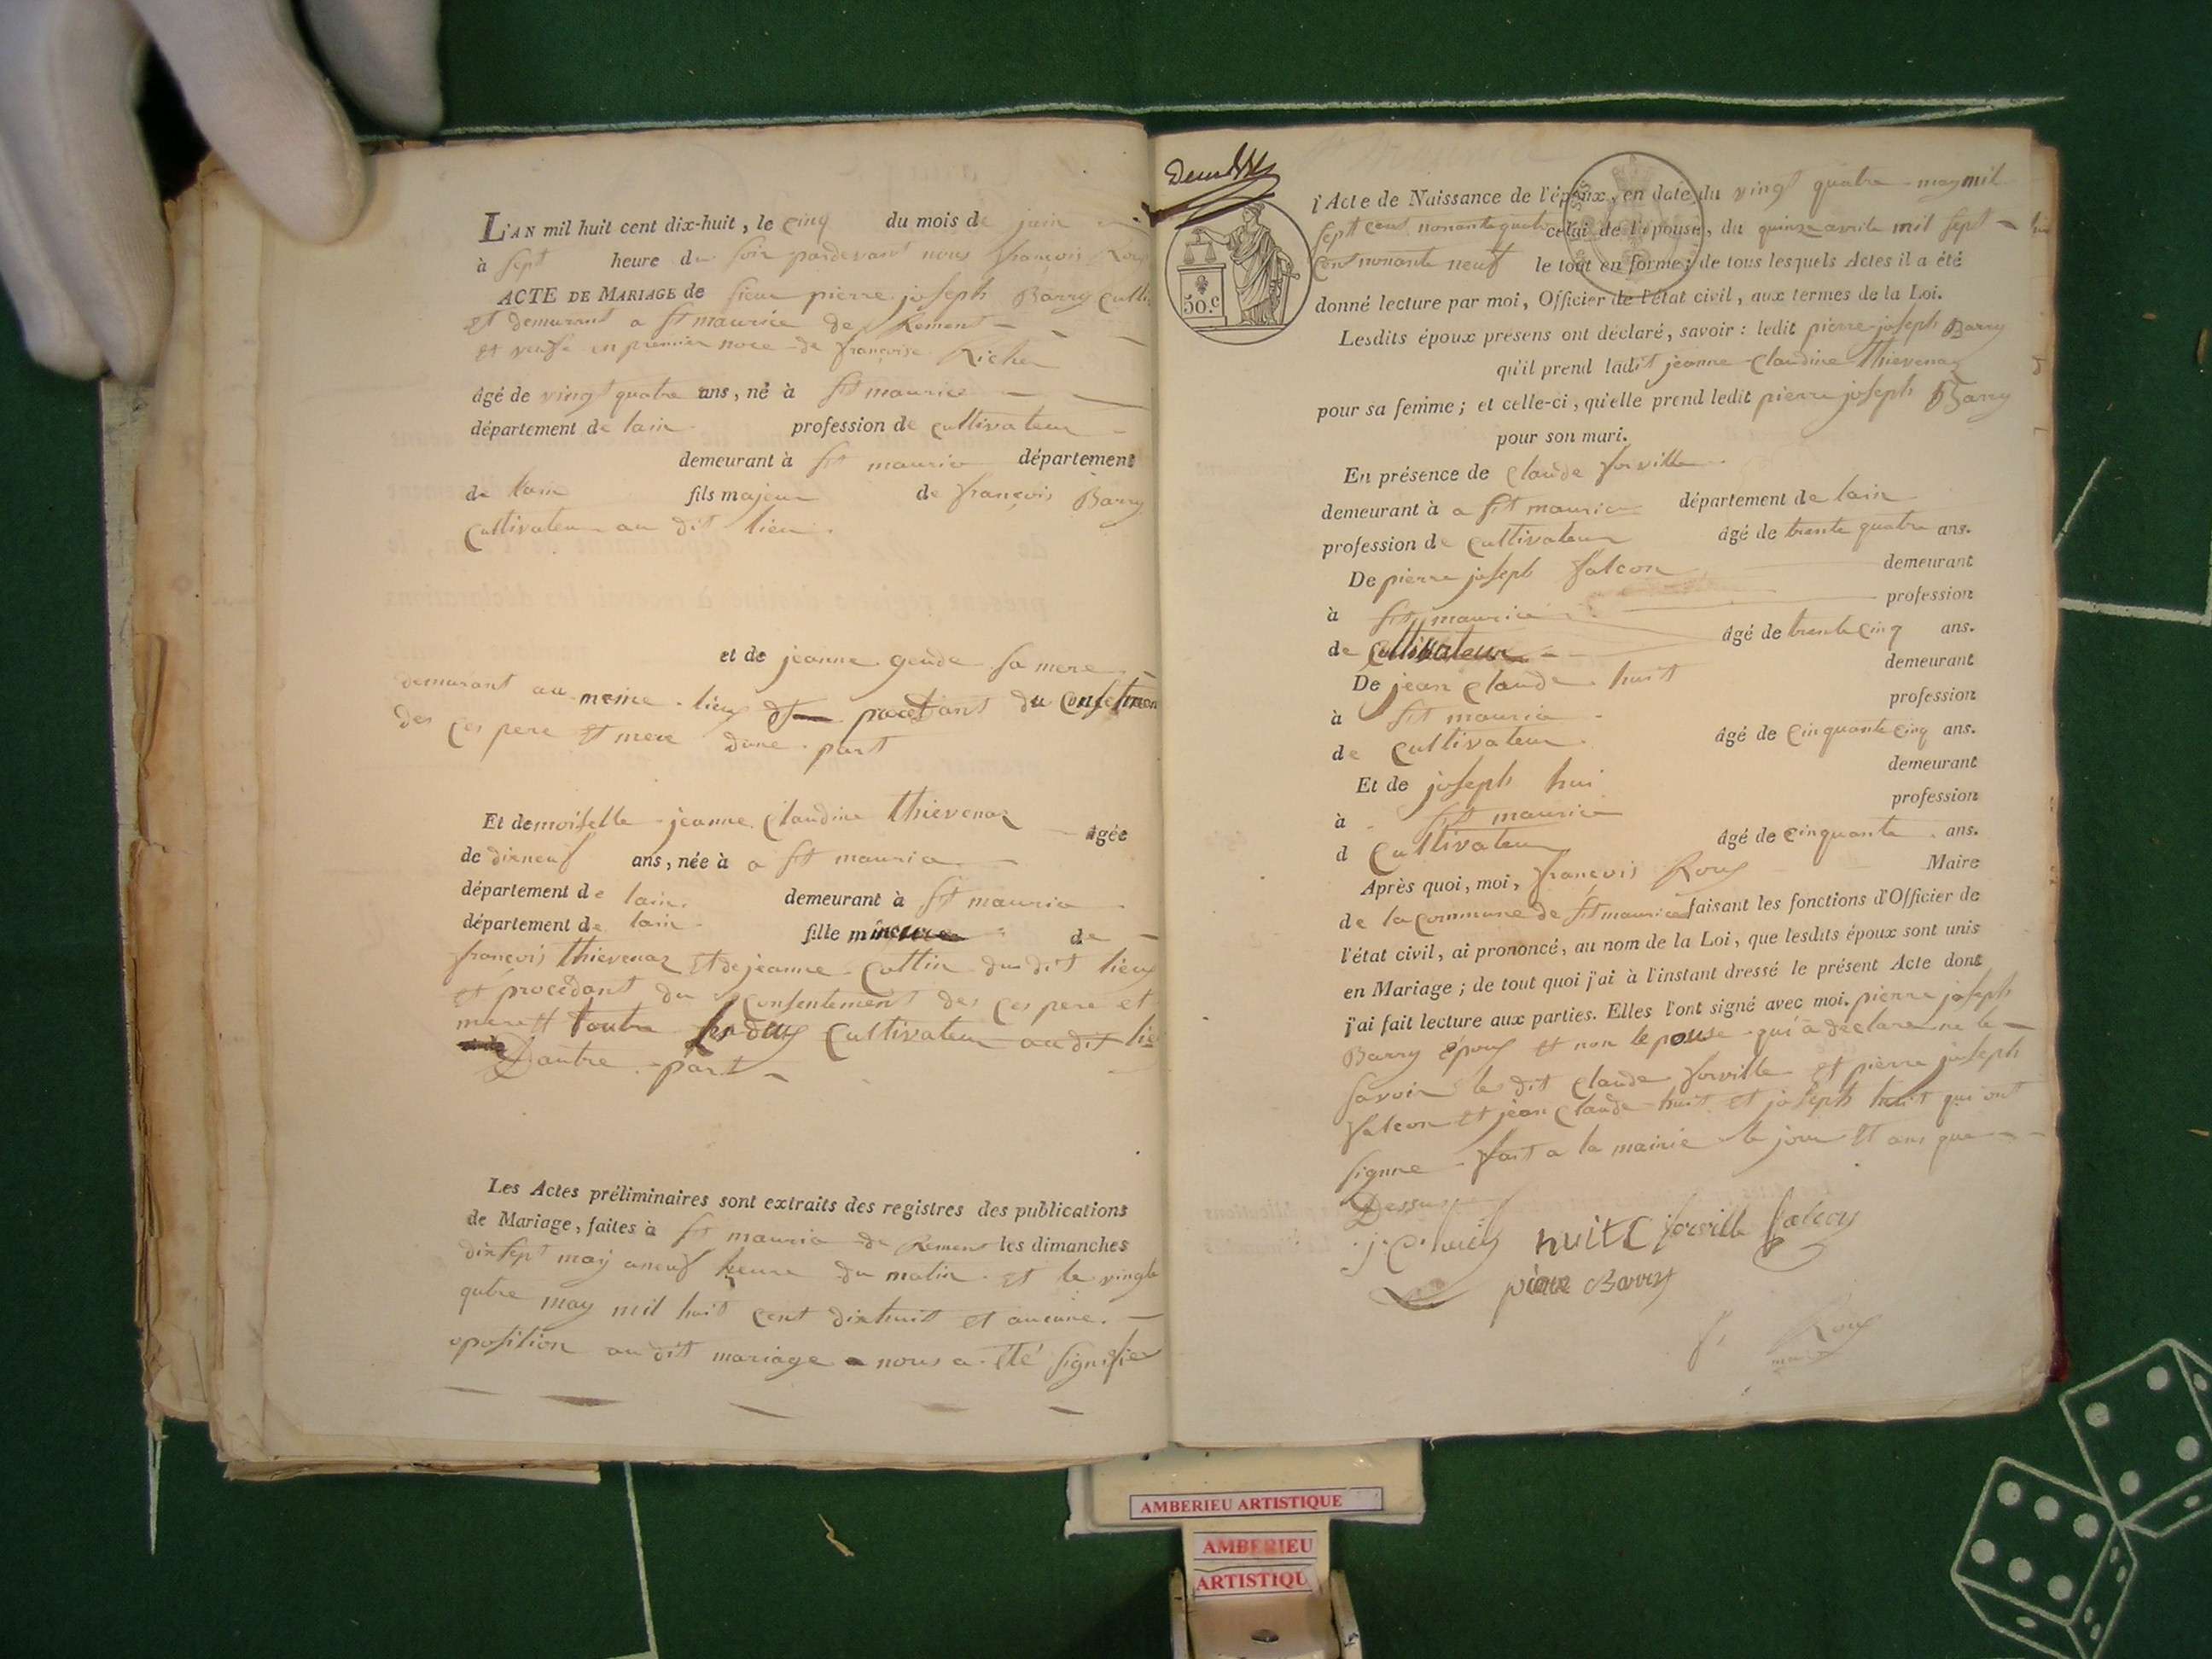 L'AN mil huit cent dix-huit, le cinq du mois de juin
à sept heure du soir pardevant nous françois Roux
ACTE DE MARIAGE de sieur pierre joseph Barry Culti
et demurant a st maurice de Remens
et veufe en premier noce de françoise Richer
âgé de vingt quatre ans, né à st maurice
département de lain profession de Cultivateur
demeurant à st maurice département
de lain fils majeur de françois Barry
Cultivateur au dit lieu
et de jeanne gende sa mere
demurant au meme lieux procedant du
des ces pere et mere dune part
Et demoiselle jeanne Claudine thievenaz agée
de dixneuf ans, née à a st maurice
département de lain demeurant à st maurice
département de lain fille mineure de
françois thievenaz et de jeanne Cottin du dit lieux
et procedant du consentement des ces pere et
mere toutte les deux Cultivateur audit lieu
Dautre part
Les Actes préliminaires sont extraits des registres des publications
de Mariage, faites à st maurice de Remens les dimanches
dixsept may aneuf heure du matin et le vingt
qutre may mil huit Cent dixhuit et aucune
oposition au dit mariage nous a été signifier
50.c
l'Acte de Naissance de l'époux, en date du vingt quatre may mil
sept cent nonante quatre celui de l'épouse, du quinze avrile mil sept
Cent nonante neuf le tout en forme; de tous lesquels Actes il a été
donné lecture par moi, Officier de l'état civil, aux termes de la Loi.
Lesdits époux présens ont déclaré, savoir: ledit pierre joseph Barry
qu'il prend ladit jeanne Claudine thievenaz
pour sa femme; et celle-ci, qu'elle prend ledit pierre joseph Barry
pour son mari.
En présence de Claude forville
demeurant à a st maurice département de lain
profession de Cultivateur âgé de trente quatre ans.
De pierre joseph falcon demeurant
à st maurice profession
de Cultivateur âgé de trente cinq ans.
De jean Claude huit demeurant
à st maurice profession
de Cultivateur âgé de Cinquante cinq ans.
Et de joseph hui demeurant
à st maurice profession
d Cultivateur âgé de cinquante ans.
Après quoi, moi, françois Roux Maire
de la Commune de st maurice faisant les fonctions d'Officier de
l'état civil, ai prononcé, au nom de la Loi, que lesdits époux sont unis
en Mariage; de tout quoi j'ai à l'instant dressé le présent Acte dont
j'ai fait lecture aux parties. Elles l'ont signé avec moi. pierre joseph
Barry époux et non lepouse qui a déclaré ne le
savoir le dit Claude forville et pierre joseph
falcon et jean Claude huit et joseph huit qui ont
signne fait a la mairie le jour et ans que
Dessus
huit forville falcon
pierre Barry
f. Roux
AMBERIEU ARTISTIQUE
AMBERIEU
ARTISTIQU